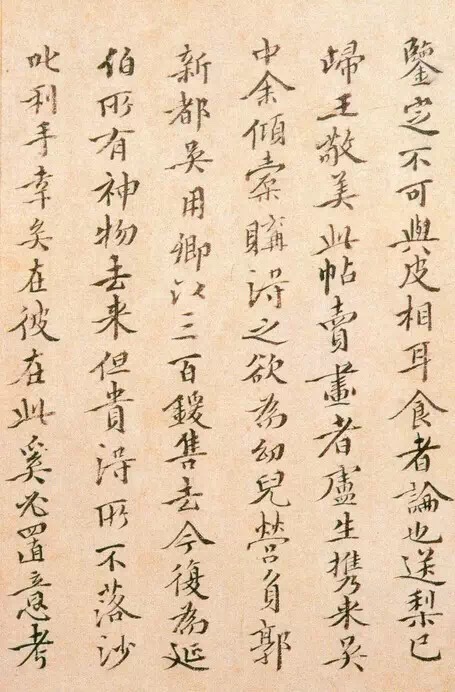 鑒定不可與皮相耳食者論也送梨已
歸王敬美此帖賣畫者盧生攜来吳
中余傾橐購得之欲為幼兒營負郭
新都吳用卿以三百鍰售去今復為延
伯所有神物去来但貴得所不落沙
叱利手幸矣在彼在此奚必置意考